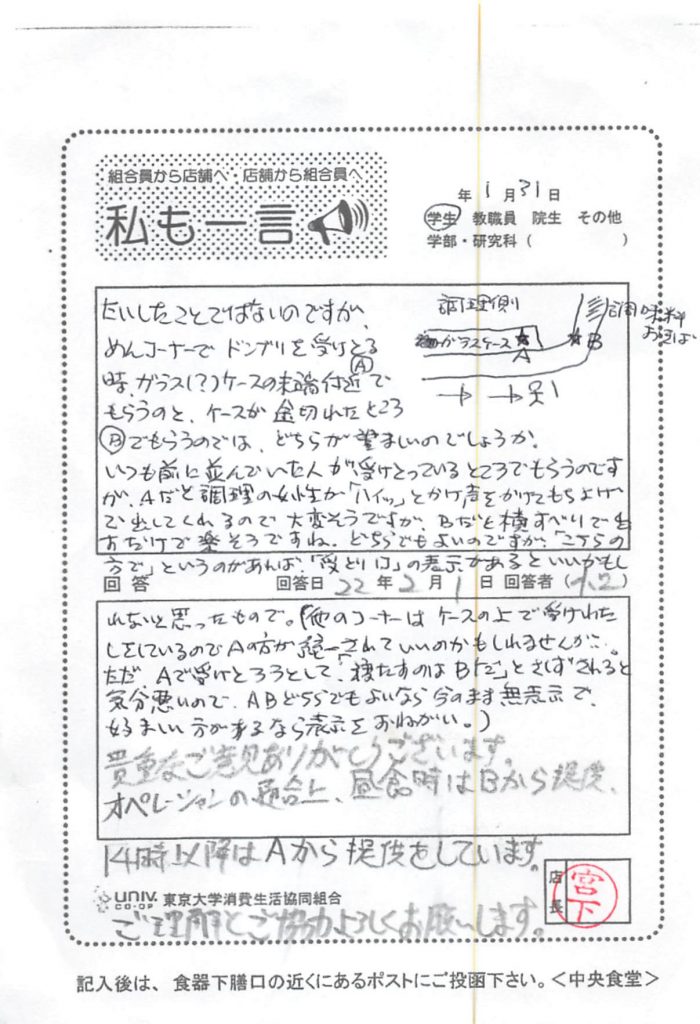 組合員から店舗へ・店舗から組合員へ
私も一言
年 1月31日
学生 教職員 院生 その他
学部・研究科( )
調理側
ガラスケース
A
B
調味料
おはし
たいしたことではないのですが、
めんコーナーで ドンブリを受けとる
時、ガラス(?)ケースの末端付近Aで
もらうのと、ケースが 途切れたところ
Bでもらうのでは、どちらが望ましいのでしょうか。
いつも前に並んでいた人が受けとっているところでもらうのです
が、Aだと調理の女性が「ハイッ」とかけ声をかけてもちよげ
で出してくれるので大変そうですが、Bだと横すべりで出
すだけで楽そうですね。どちらでもよいのですが、「こちらの
方で」というのがあれば、「受とり口」の表示があるといいかもし
回答 回答日 22年2月1日 回答者( )
れないと思ったもので。(他のコーナーは ケースの上で受けわた
しをしているのでAの方が統一されていいのかもしれませんが…。
ただ、Aで受けとろうとして、「渡すのはBだ」と されると
気分悪いので、ABどちらでもよいなら今のまま無表示で、
好ましい方があるなら表示をおねがい。)
貴重なご意見ありがとうございます。
オペレーションの都合上、昼食時はBから提供、
14時以降はAから提供をしています。
UNIV. CO-OP 東京大学消費生活協同組合
店長 宮下
ご理解とご協力よろしくお願いします。
記入後は、食器下膳口の近くにあるポストにご投函下さい。<中央食堂>